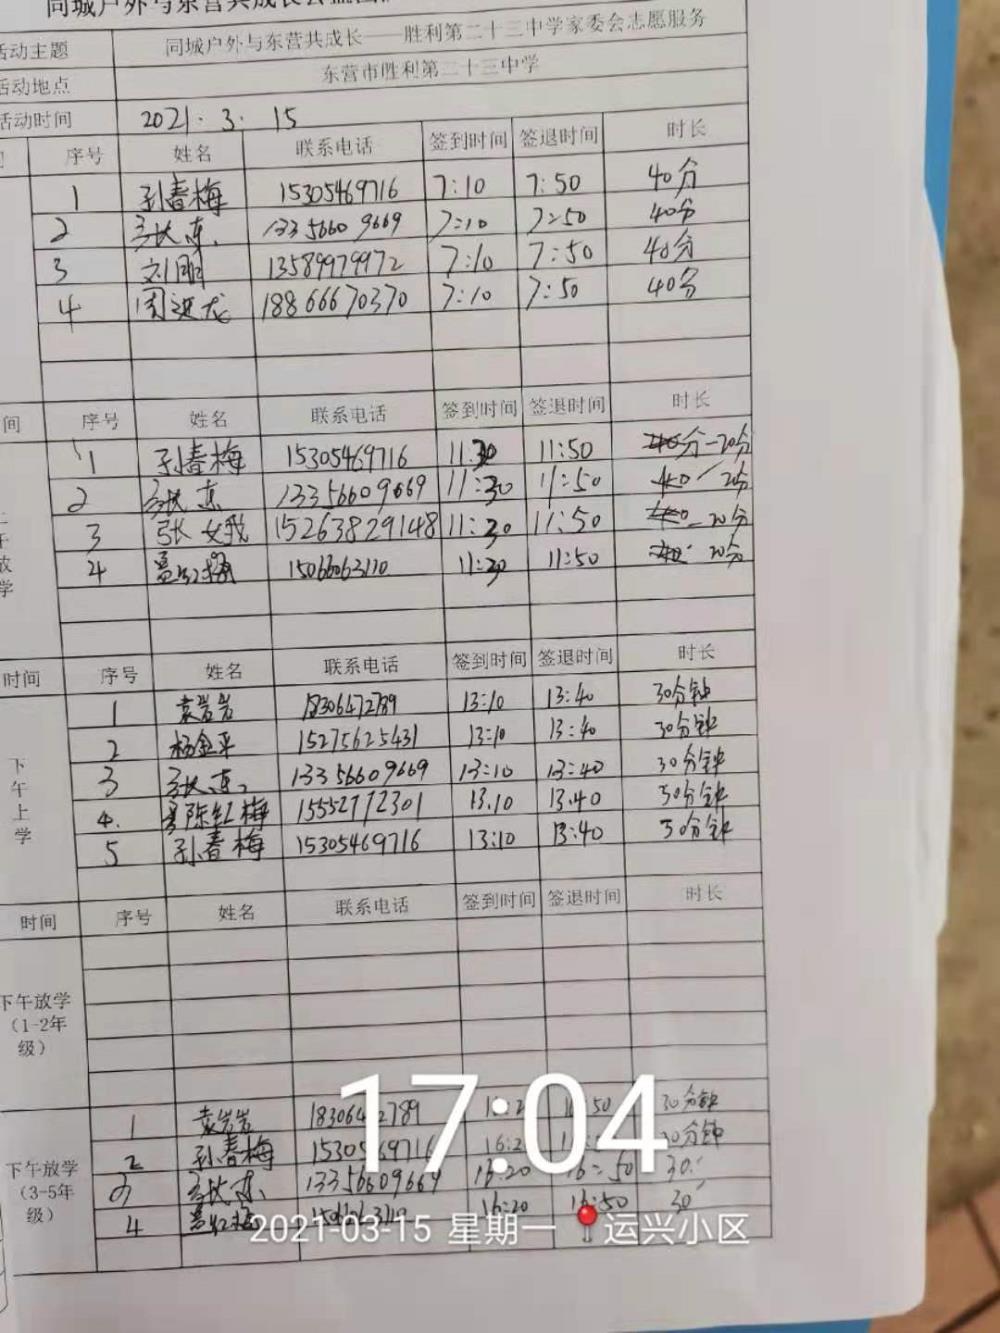 同城户外与东营共成长公益
活动主题 同城户外与东营共成长——胜利第二十三中学家委会志愿服务
活动地点 东营市胜利第二十三中学
活动时间 2021.3.15
序号 姓名 联系电话 签到时间 签退时间 时长
1 孙春梅 15305469716 7:10 7:50 40分
2 13356609669 7:10 7:50 40分
3 刘朋 13589979972 7:10 7:50 40分
4 周延龙 18866670370 7:10 7:50 40分
间 序号 姓名 联系电话 签到时间 签退时间 时长
1 孙春梅 15305469716 11:30 11:50 20分
2 13356609669 11:30 11:50 20分
3 张 15263829148 11:30 11:50 20分
4 15066063110 11:30 11:50 20分
午放学
时间 序号 姓名 联系电话 签到时间 签退时间 时长
下午上学
1 袁岩岩 18306472789 13:10 13:40 30分钟
2 杨金平 15275625431 13:10 13:40 30分钟
3 13356609669 13:10 13:40 30分钟
4. 陈红梅 15552772301 13.10 13.40 30分钟
5 孙春梅 15305469716 13:10 13:40 30分钟
时间 序号 姓名 联系电话 签到时间 签退时间 时长
下午放学
(1-2年
级)
17:04
下午放学
(3-5年
级)
1 袁岩岩 50 30分钟
2 孙春梅 30分钟
3 13356609669 16:20 16:50 30'
4 16:20 16:50 30'
2021-03-15 星期一 运兴小区